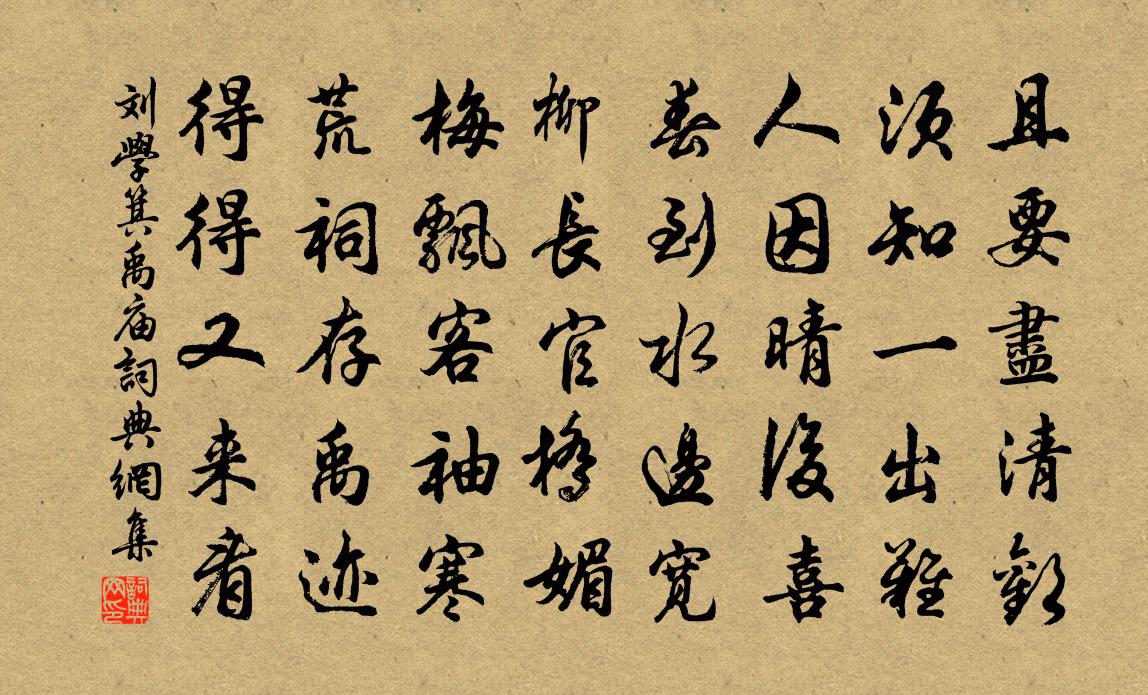 且要盡清歡
須知一出難
人因晴後喜
春到水邊寬
柳長官橋媚
梅飄客袖寒
荒祠存禹迹
得得又来看
刘學箕禹庙詞典網集
詞典网印